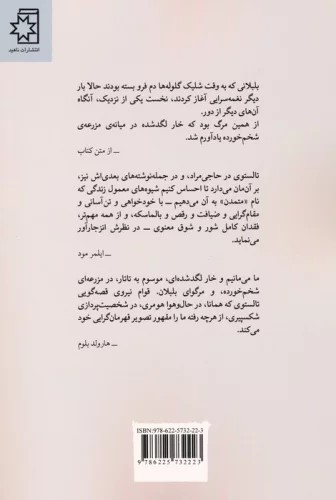 انتشارات ناهید
بلبلانی که به وقت شلیک گلوله‌ها دم فرو بسته بودند حالا بار
دیگر نغمه‌سرایی آغاز کردند، نخست یکی از نزدیک، آنگاه
آن‌های دیگر از دور.
از همین مرگ بود که خار لگدشده در میانه‌ی مزرعه‌ی
شخم‌خورده یادآورم شد.
ــ از متن کتاب
تالستوی در حاجی‌مراد، و در جمله‌نوشته‌های بعدی‌اش نیز،
بر آن‌مان می‌دارد تا احساس کنیم شیوه‌های معمول زندگی که
نام «متمدن» به آن می‌دهیم ــ با خودخواهی و تن‌آسانی و
مقام‌گرایی و ضیافت و رقص و بالماسکه، و از همه مهم‌تر،
فقدان کامل شور و شوق معنوی ــ در نظرش انزجارآور
می‌نماید.
ــ ایلمر مود
ما می‌مانیم و خار لگدشده‌ای، موسوم به تاتار، در مزرعه‌ای
شخم‌خورده، و مرگوای بلبلان. قوام نیروی قصه‌گویی
تالستوی که همانا، در حال‌وهوا هومری، در شخصیت‌پردازی
شکسپیری، از هرچه رفته ما را مقهور تصویر قهرمان‌گرایی خود
می‌کند.
ــ هارولد بلوم
ISBN: 978-622-5732-22-3
9 786225 732223